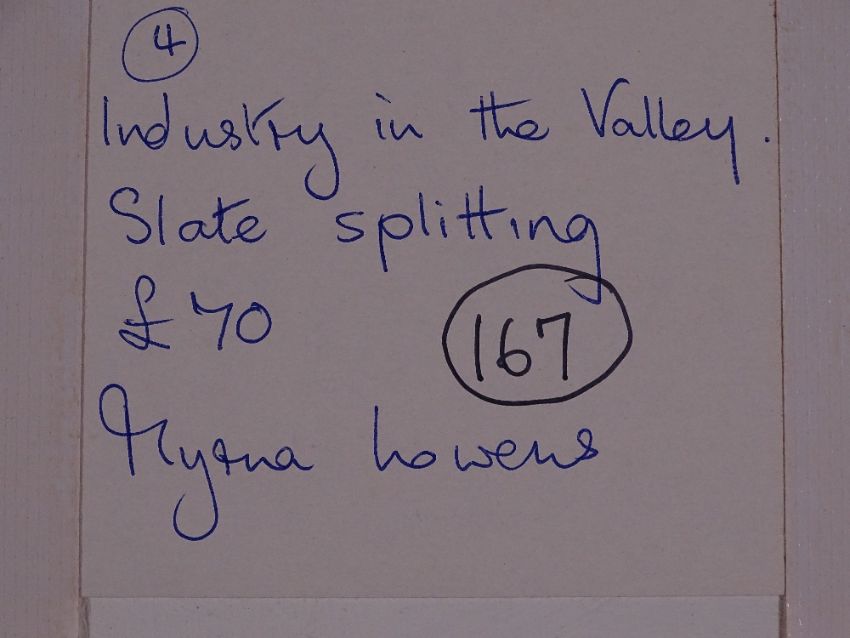 4
Industry in the Valley.
Slate splitting
£70
167
Myrna Lowens